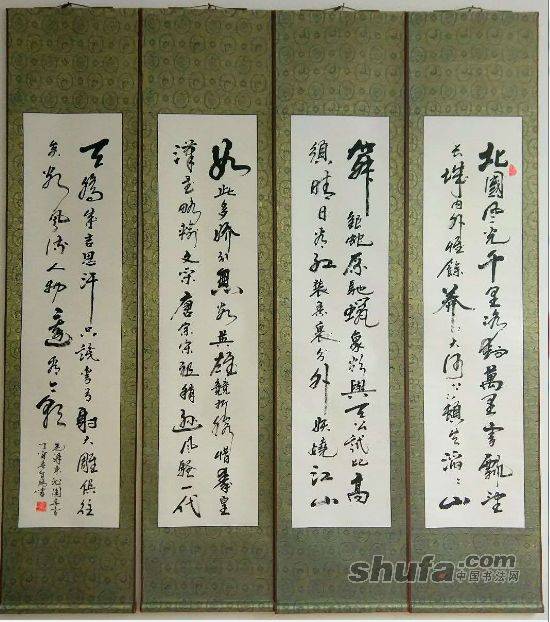 北國風光千里冰封萬里雪飄望
长城内外惟餘莽〻大河上下頓失滔〻山
舞銀蛇原馳蠟象欲與天公試比高
須晴日看红装素裹分外妖嬈江山
如此多嬌引無數英雄競折腰惜秦皇
漢武略輸文采唐宗宋祖稍遜風騷一代
天驕成吉思汗只識彎弓射大雕俱往
矣數風流人物還看今朝
毛澤東沁園春雪
shufa.com
中国书法网